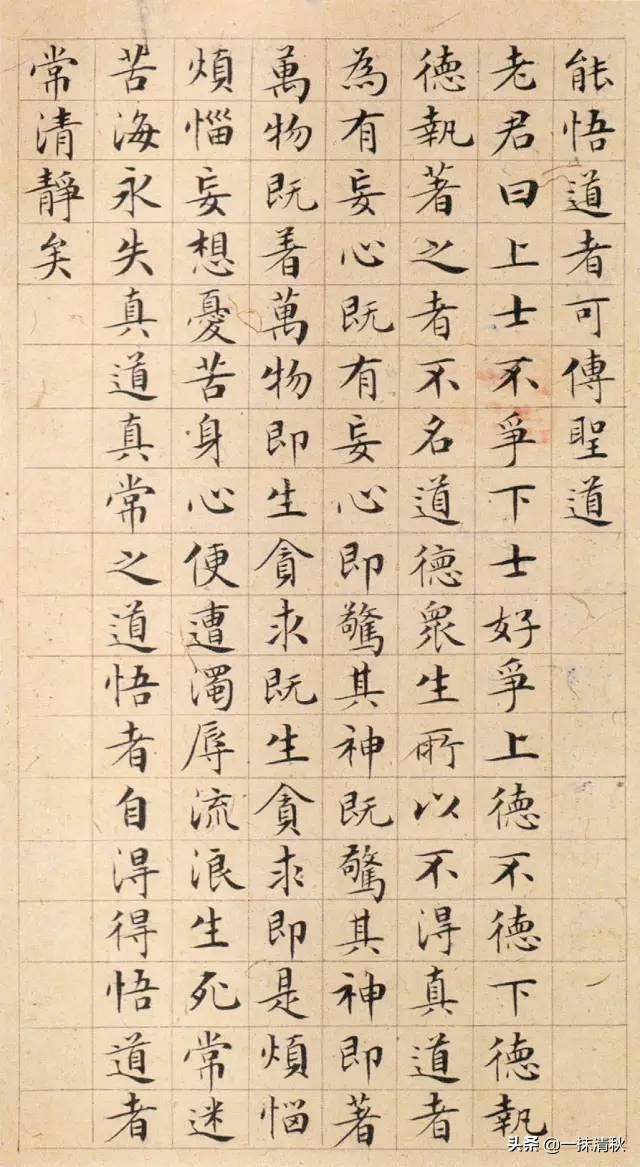 能悟道者可傳聖道
老君曰上士不爭下士好爭上德不德下德執
德執著之者不名道德衆生所以不得真道者
為有妄心既有妄心即驚其神既驚其神即著
萬物既着萬物即生貪求既生貪求即是煩惱
煩惱妄想憂苦身心便遭濁辱流浪生死常迷
苦海永失真道真常之道悟者自得得悟道者
常清靜矣
头条 @一抹清秋